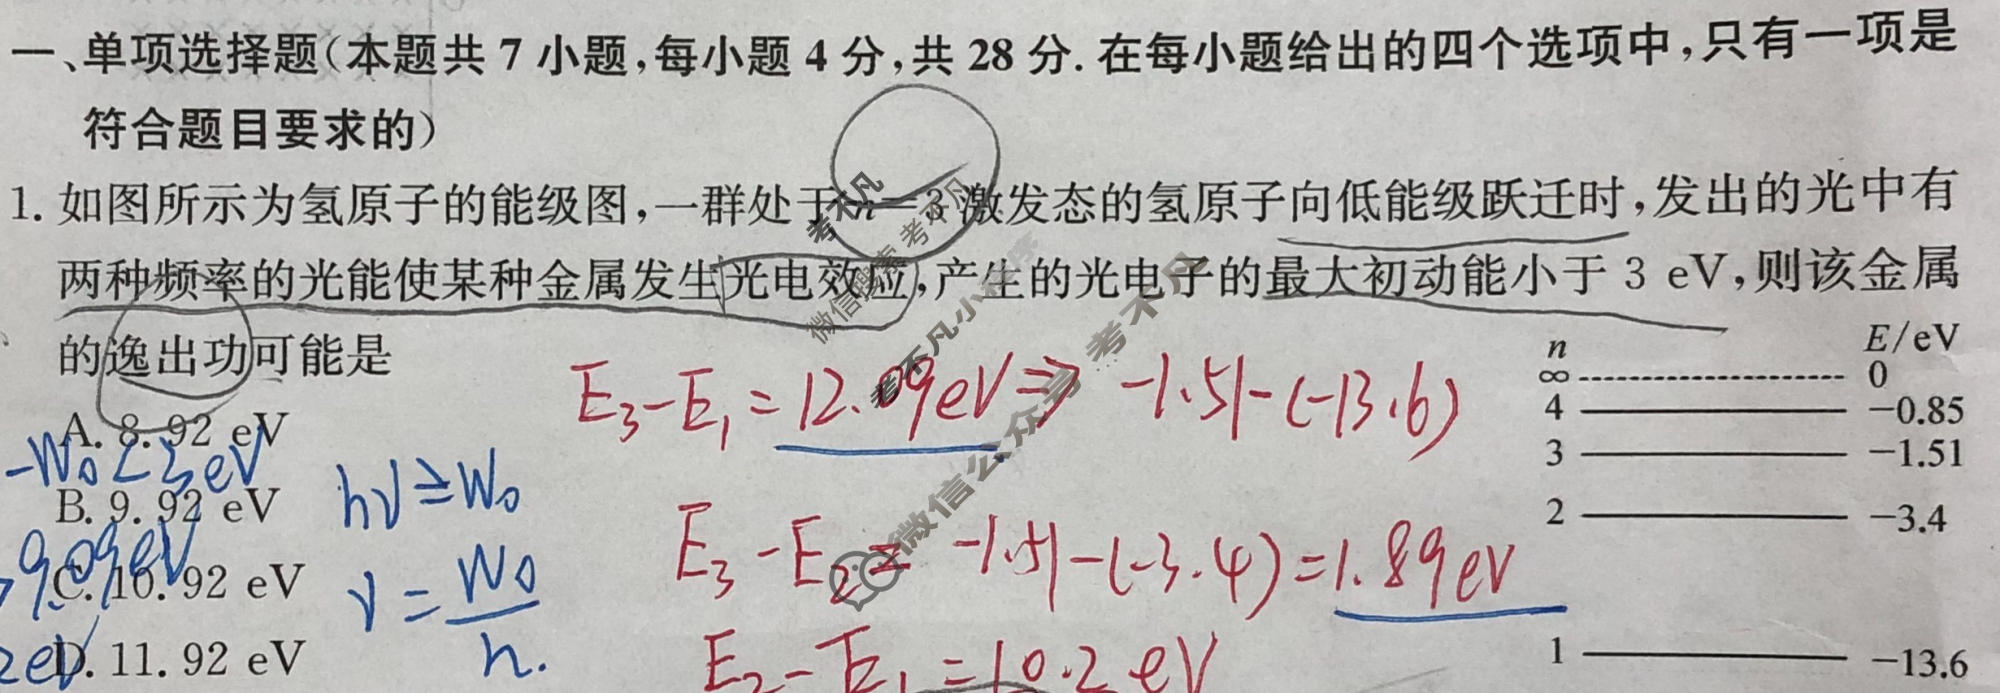 一、单项选择题(本题共 7 小题,每小题 4 分,共 28 分. 在每小题给出的四个选项中,只有一项是
符合题目要求的)
1. 如图所示为氢原子的能级图,一群处于 n=3 激发态的氢原子向低能级跃迁时,发出的光中有
两种频率的光能使某种金属发生光电效应,产生的光电子的最大初动能小于 3 eV,则该金属
的逸出功可能是
n E/eV
∞ 0
4 -0.85
3 -1.51
2 -3.4
1 -13.6
A. 8.92 eV
B. 9.92 eV
C. 10.92 eV
D. 11.92 eV
E₃-E₁=12.09eV⇒ -1.51-(-13.6)
E₃-E₂= -1.51-(-3.4)=1.89eV
E₂-E₁=10.2eV
-W₀<3eV
9.09eV
2eV
hν≥W₀
ν=W₀/h.
考不凡
微信搜索 考不凡
考不凡小程序
微信公众号 考不凡